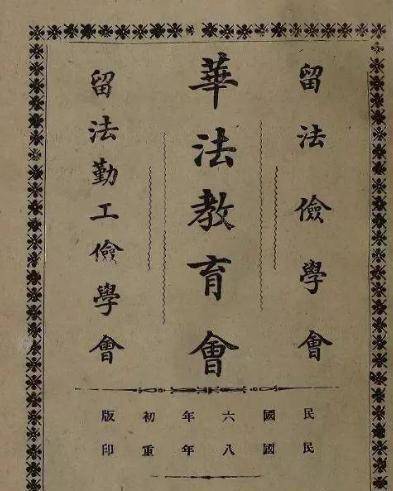 留法儉學會
華法教育會
留法勤工儉學會
民國六年初版
民國八年重印